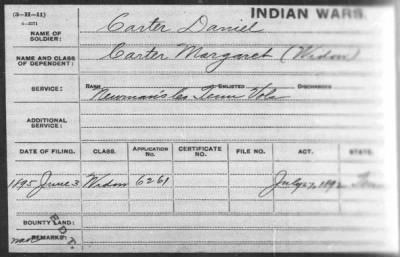 (3-H-11)
INDIAN WARS.
NAME OF SOLDIER: Carter Daniel
NAME AND CLASS OF DEPENDENT: Carter Margaret (Widow)
SERVICE: RANK ENLISTED DISCHARGED
Newman's Co. Tenn Vols
ADDITIONAL SERVICE:
DATE OF FILING. CLASS. APPLICATION No. CERTIFICATE NO. FILE NO. ACT. STATE.
1895 June 3 Widow 6261 July 27, 1892
BOUNTY LAND:
REMARKS: